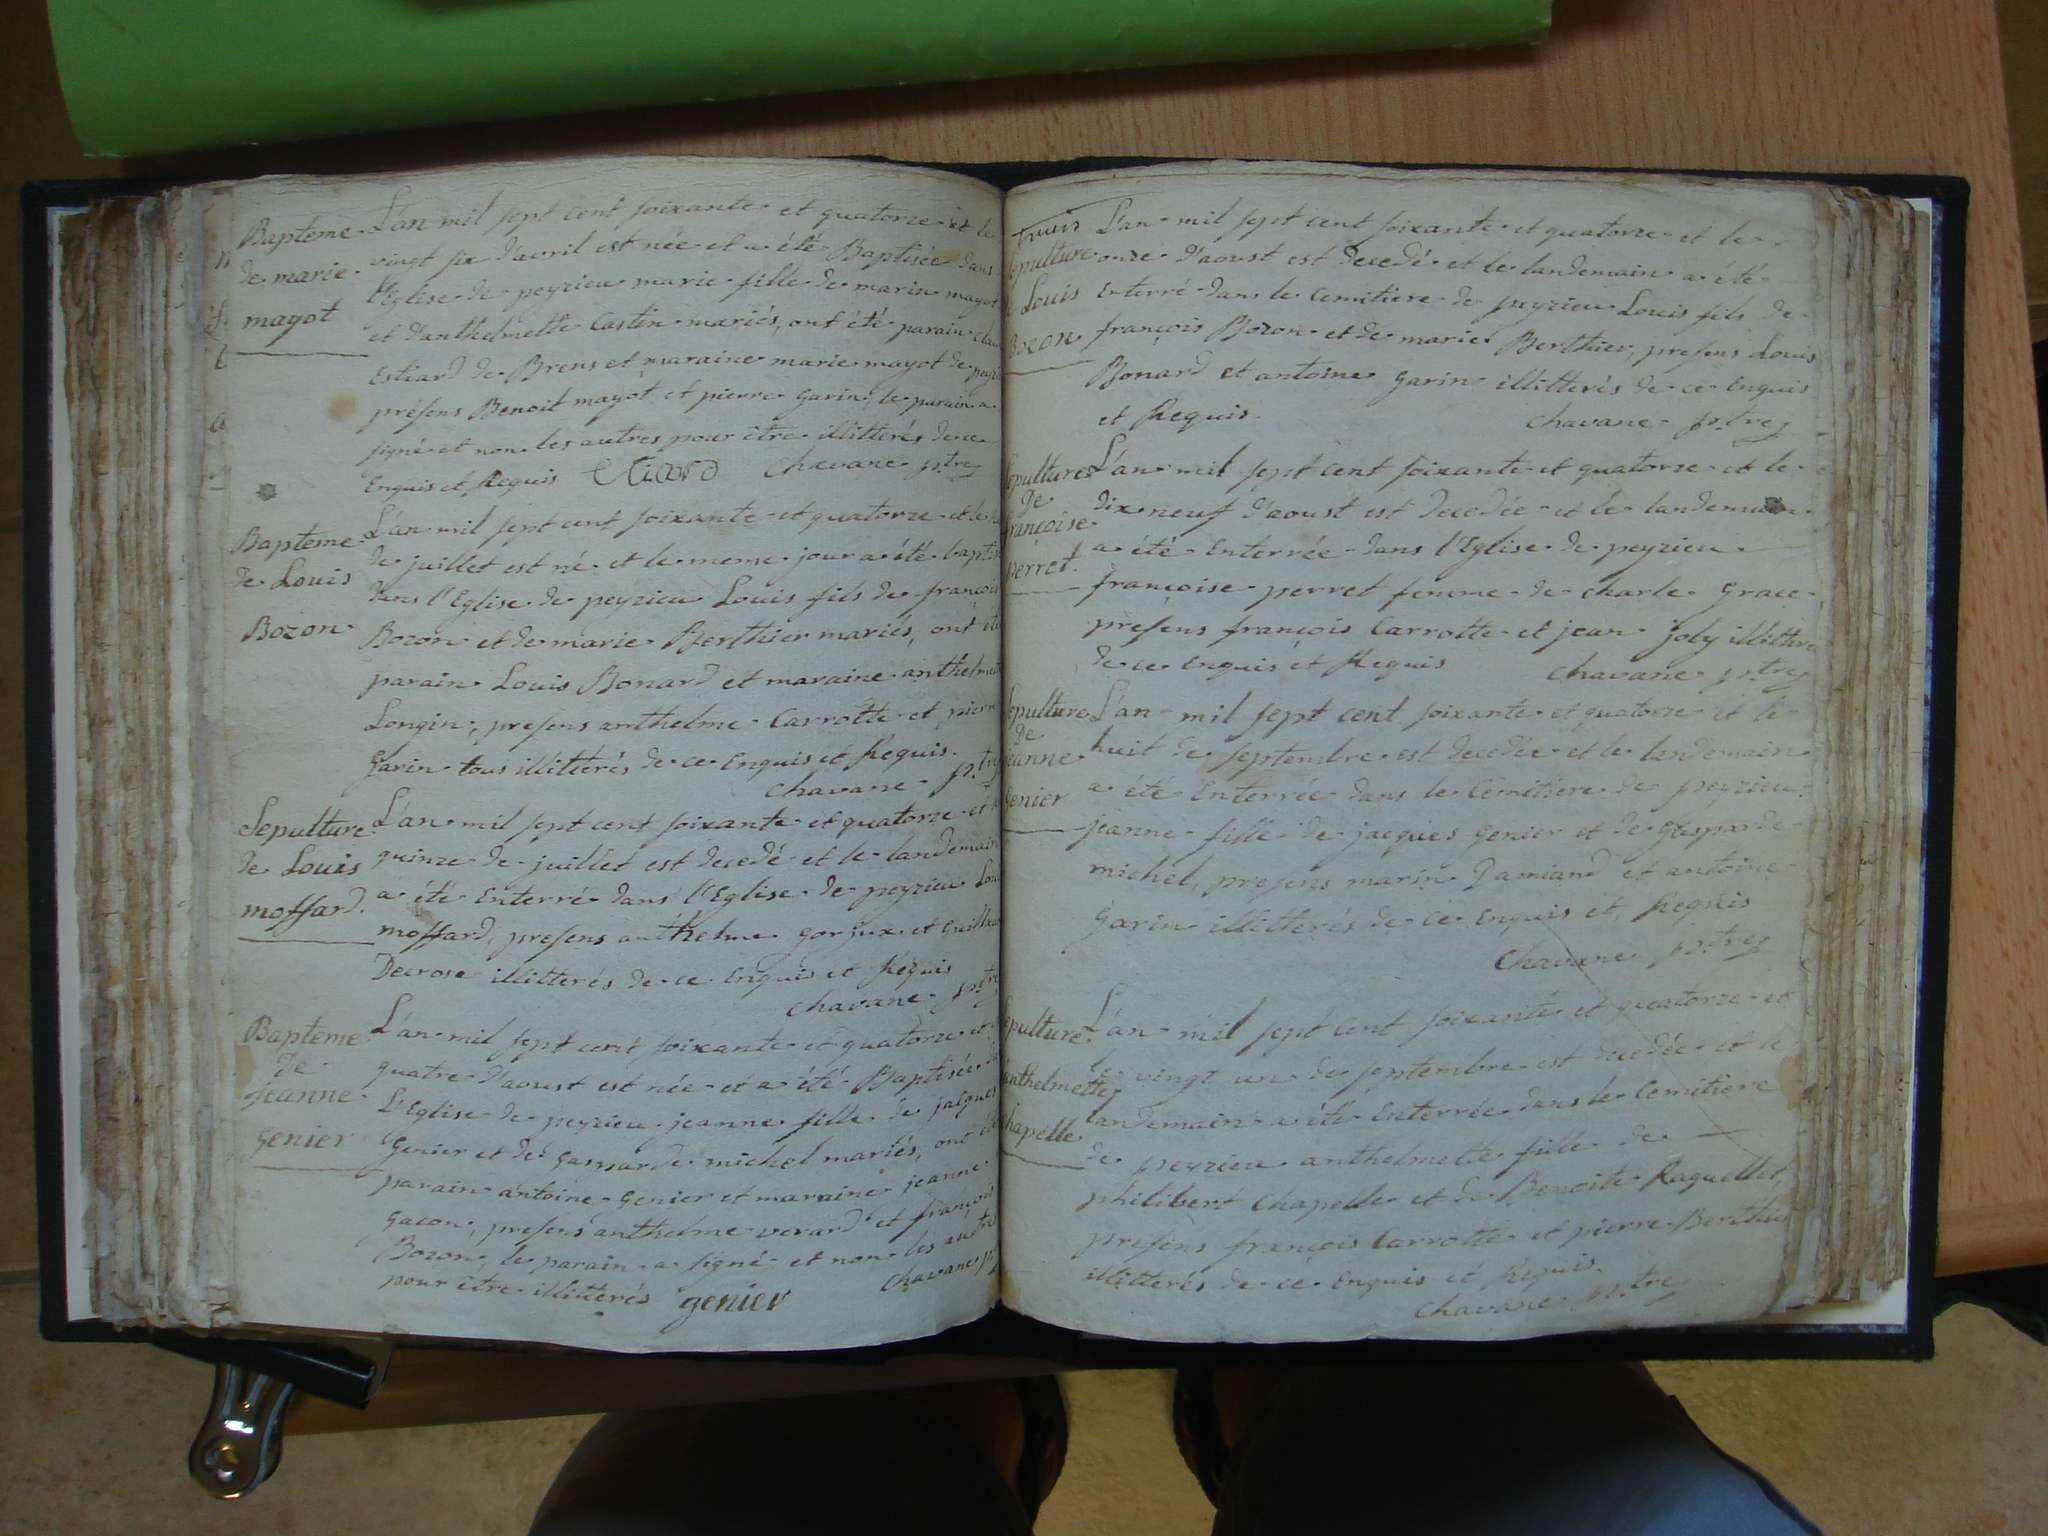 Bapteme
de marie
mayot
L'an mil sept cent soixante et quatorze et le
vingt six d'avril est née et a été Baptisée dans
l'Eglise de peyzieu marie fille de marin mayot
et d'anthelmette Castin mariés, ont été parain
Estiard de Brens et maraine marie mayot de
présens Benoit mayot et pierre garin, le parain a
signé et non les autres pour être illitterés de ce
Enquis et Requis Etiard chavane ptre
Bapteme
de Louis
Bozon
L'an mil sept cent soixante et quatorze et le
de juillet est né et le meme jour a été
dans l'Eglise de peyzieu Louis fils de françois
Bozon et de marie Berthier mariés, ont été
parain Louis Bonard et maraine
Longin, presens anthelme Carrotte et pierre
Garin tous illitterés de ce Enquis et Requis.
chavane ptre
Sepulture
de Louis
moffard.
L'an mil sept cent soixante et quatorze et
quinze de juillet est decedé et le landemain
a été Enterré dans l'Eglise de peyzieu
moffard, presens anthelme gorjux et
Decrose illitterés de ce Enquis et Requis
chavane ptre
Bapteme
de
jeanne
genier
L'an mil sept cent soixante et quatorze et
quatre d'aoust est née et a été Baptisée
L'Eglise de peyzieu jeanne fille de jacques
Genier et de gasparde michel mariés, ont été
parain antoine genier et maraine jeanne
gacon, presens anthelme verard et françois
Bozon, le parain a signé et non les autres
pour être illitterés genier chavane
Louis
Bozon
L'an mil sept cent soixante et quatorze et le
onze d'aoust est decedé et le landemain a été
Enterré dans le Cemitiere de peyzieu Louis fils de
françois Bozon et de marie Berthier, presens Louis
Bonard et antoine garin illitterés de ce Enquis
et Requis. chavane ptre
Sepulture
De
françoise
perret.
L'an mil sept cent soixante et quatorze et le
dix neuf d'aoust est decedée et le landemain
a été Enterrée dans l'Eglise de peyzieu
françoise perret femme de charle grace,
presens françois Carrotte et jean joly
de ce Enquis et Requis chavane ptre
Sepulture
De
jeanne
genier
L'an mil sept cent soixante et quatorze et le
huit de septembre est decedée et le landemain
a été Enterrée dans le Cemitiere de peyzieu
jeanne fille de jacques genier et de gasparde
michel, presens marin Damiand et antoine
Garin illitterés de ce Enquis et Requis
chavane ptre
Sepulture
anthelmette
chapelle
L'an mil sept cent soixante et quatorze et
le vingt un de septembre est decedée et le
landemain a été Enterrée dans le Cemitiere
de peyzieu anthelmette fille de
philibert Chapelle et de Benoite Raquellet,
presens françois Carrotte et pierre Berthier
illitterés de ce Enquis et Requis.
chavane ptre